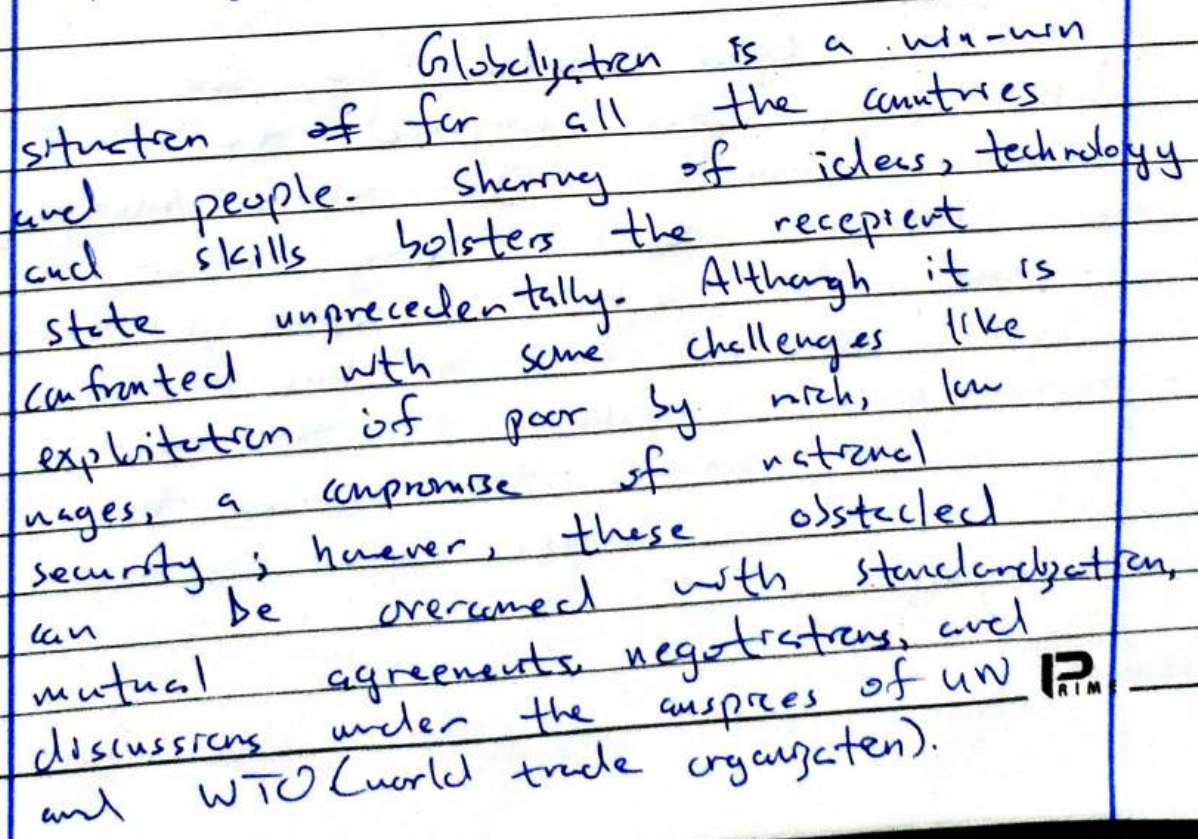 Globalization is a win-win
situation of for all the countries
and people. Sharing of ideas, technology
and skills bolsters the recepient
state unprecedentally. Although it is
confronted with some challenges like
exploitation of poor by rich, low
wages, a compromise of national
security ; however, these obstacled
can be overcomed with standardization,
mutual agreements, negotiations, and
discussions under the auspices of UN PRIME
and WTO (world trade organization).